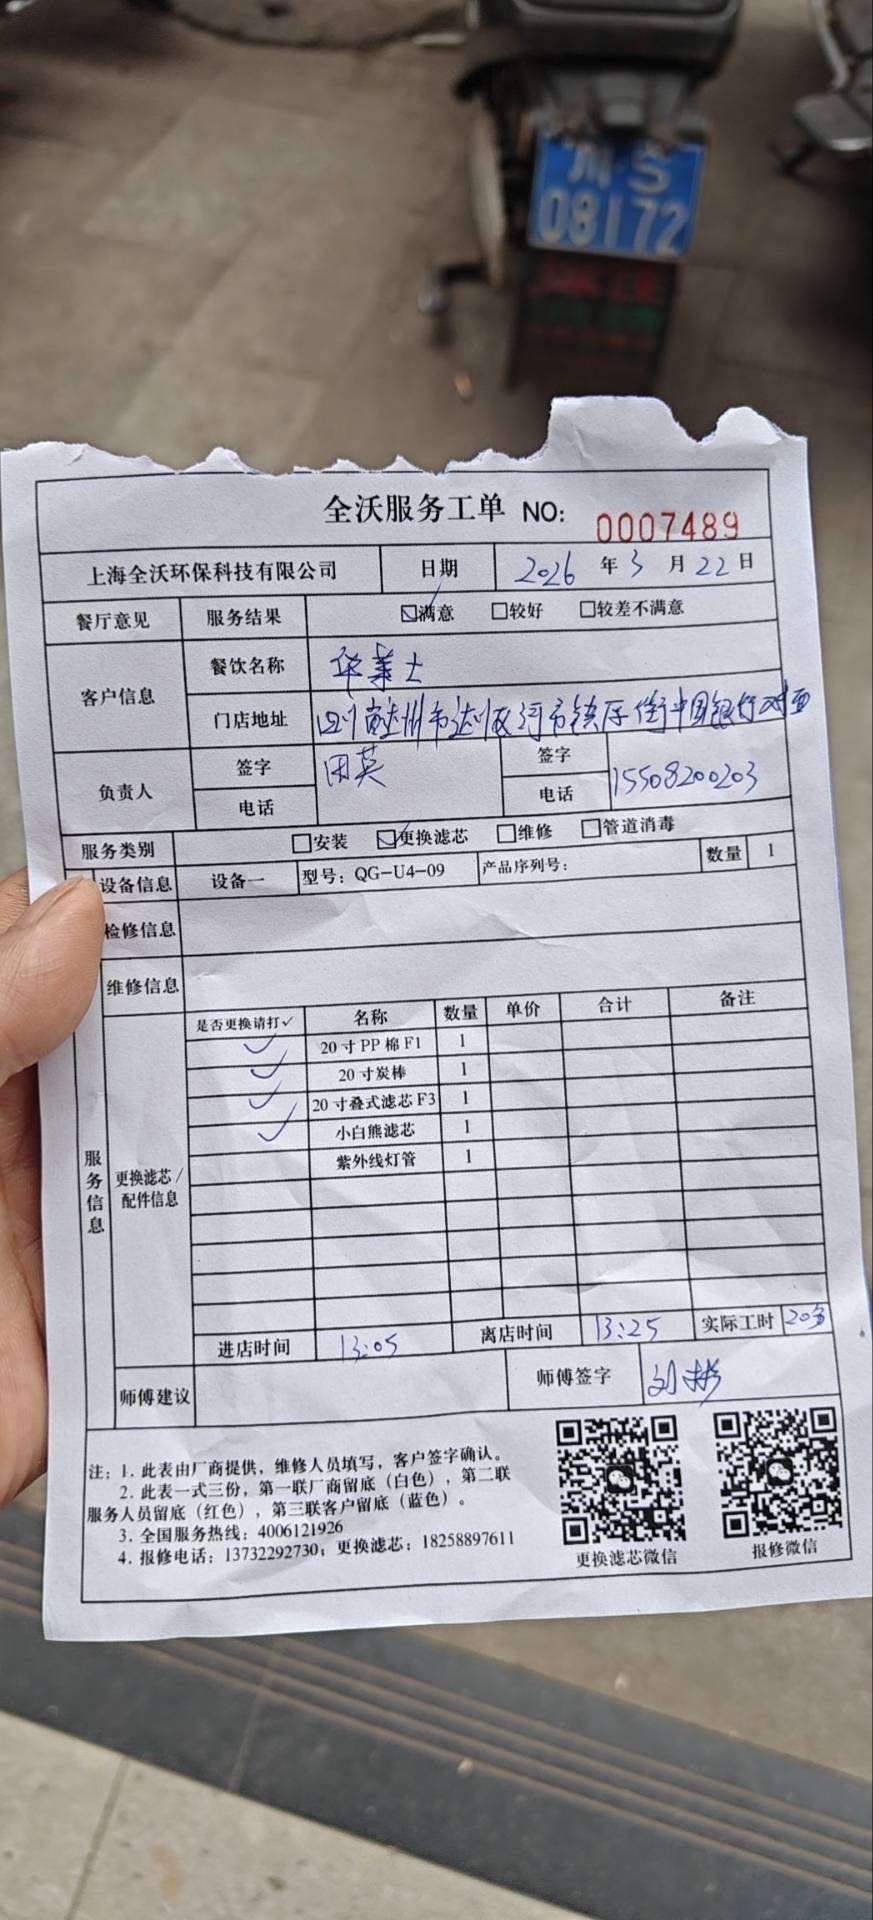 川S
08172
全沃服务工单 NO: 0007489
上海全沃环保科技有限公司 日期 2026 年 3 月 22 日
餐厅意见 服务结果 ☑满意 □较好 □较差不满意
客户信息 餐饮名称 华莱士
门店地址 四川省达州市达川区河市镇 街中国银行对面
负责人 签字 田英 签字
电话 电话 15508200203
服务类别 □安装 ☑更换滤芯 □维修 □管道消毒
设备信息 设备一 型号：QG-U4-09 产品序列号： 数量 1
检修信息
维修信息
服务信息
更换滤芯/配件信息
是否更换请打✓ 名称 数量 单价 合计 备注
✓ 20寸PP棉F1 1
✓ 20寸炭棒 1
✓ 20寸叠式滤芯F3 1
✓ 小白熊滤芯 1
紫外线灯管 1
进店时间 13:05 离店时间 13:25 实际工时 20分
师傅建议 师傅签字 刘彬
注：1. 此表由厂商提供，维修人员填写，客户签字确认。
2. 此表一式三份，第一联厂商留底（白色），第二联
服务人员留底（红色），第三联客户留底（蓝色）。
3. 全国服务热线：4006121926
4. 报修电话：13732292730；更换滤芯：18258897611
更换滤芯微信 报修微信